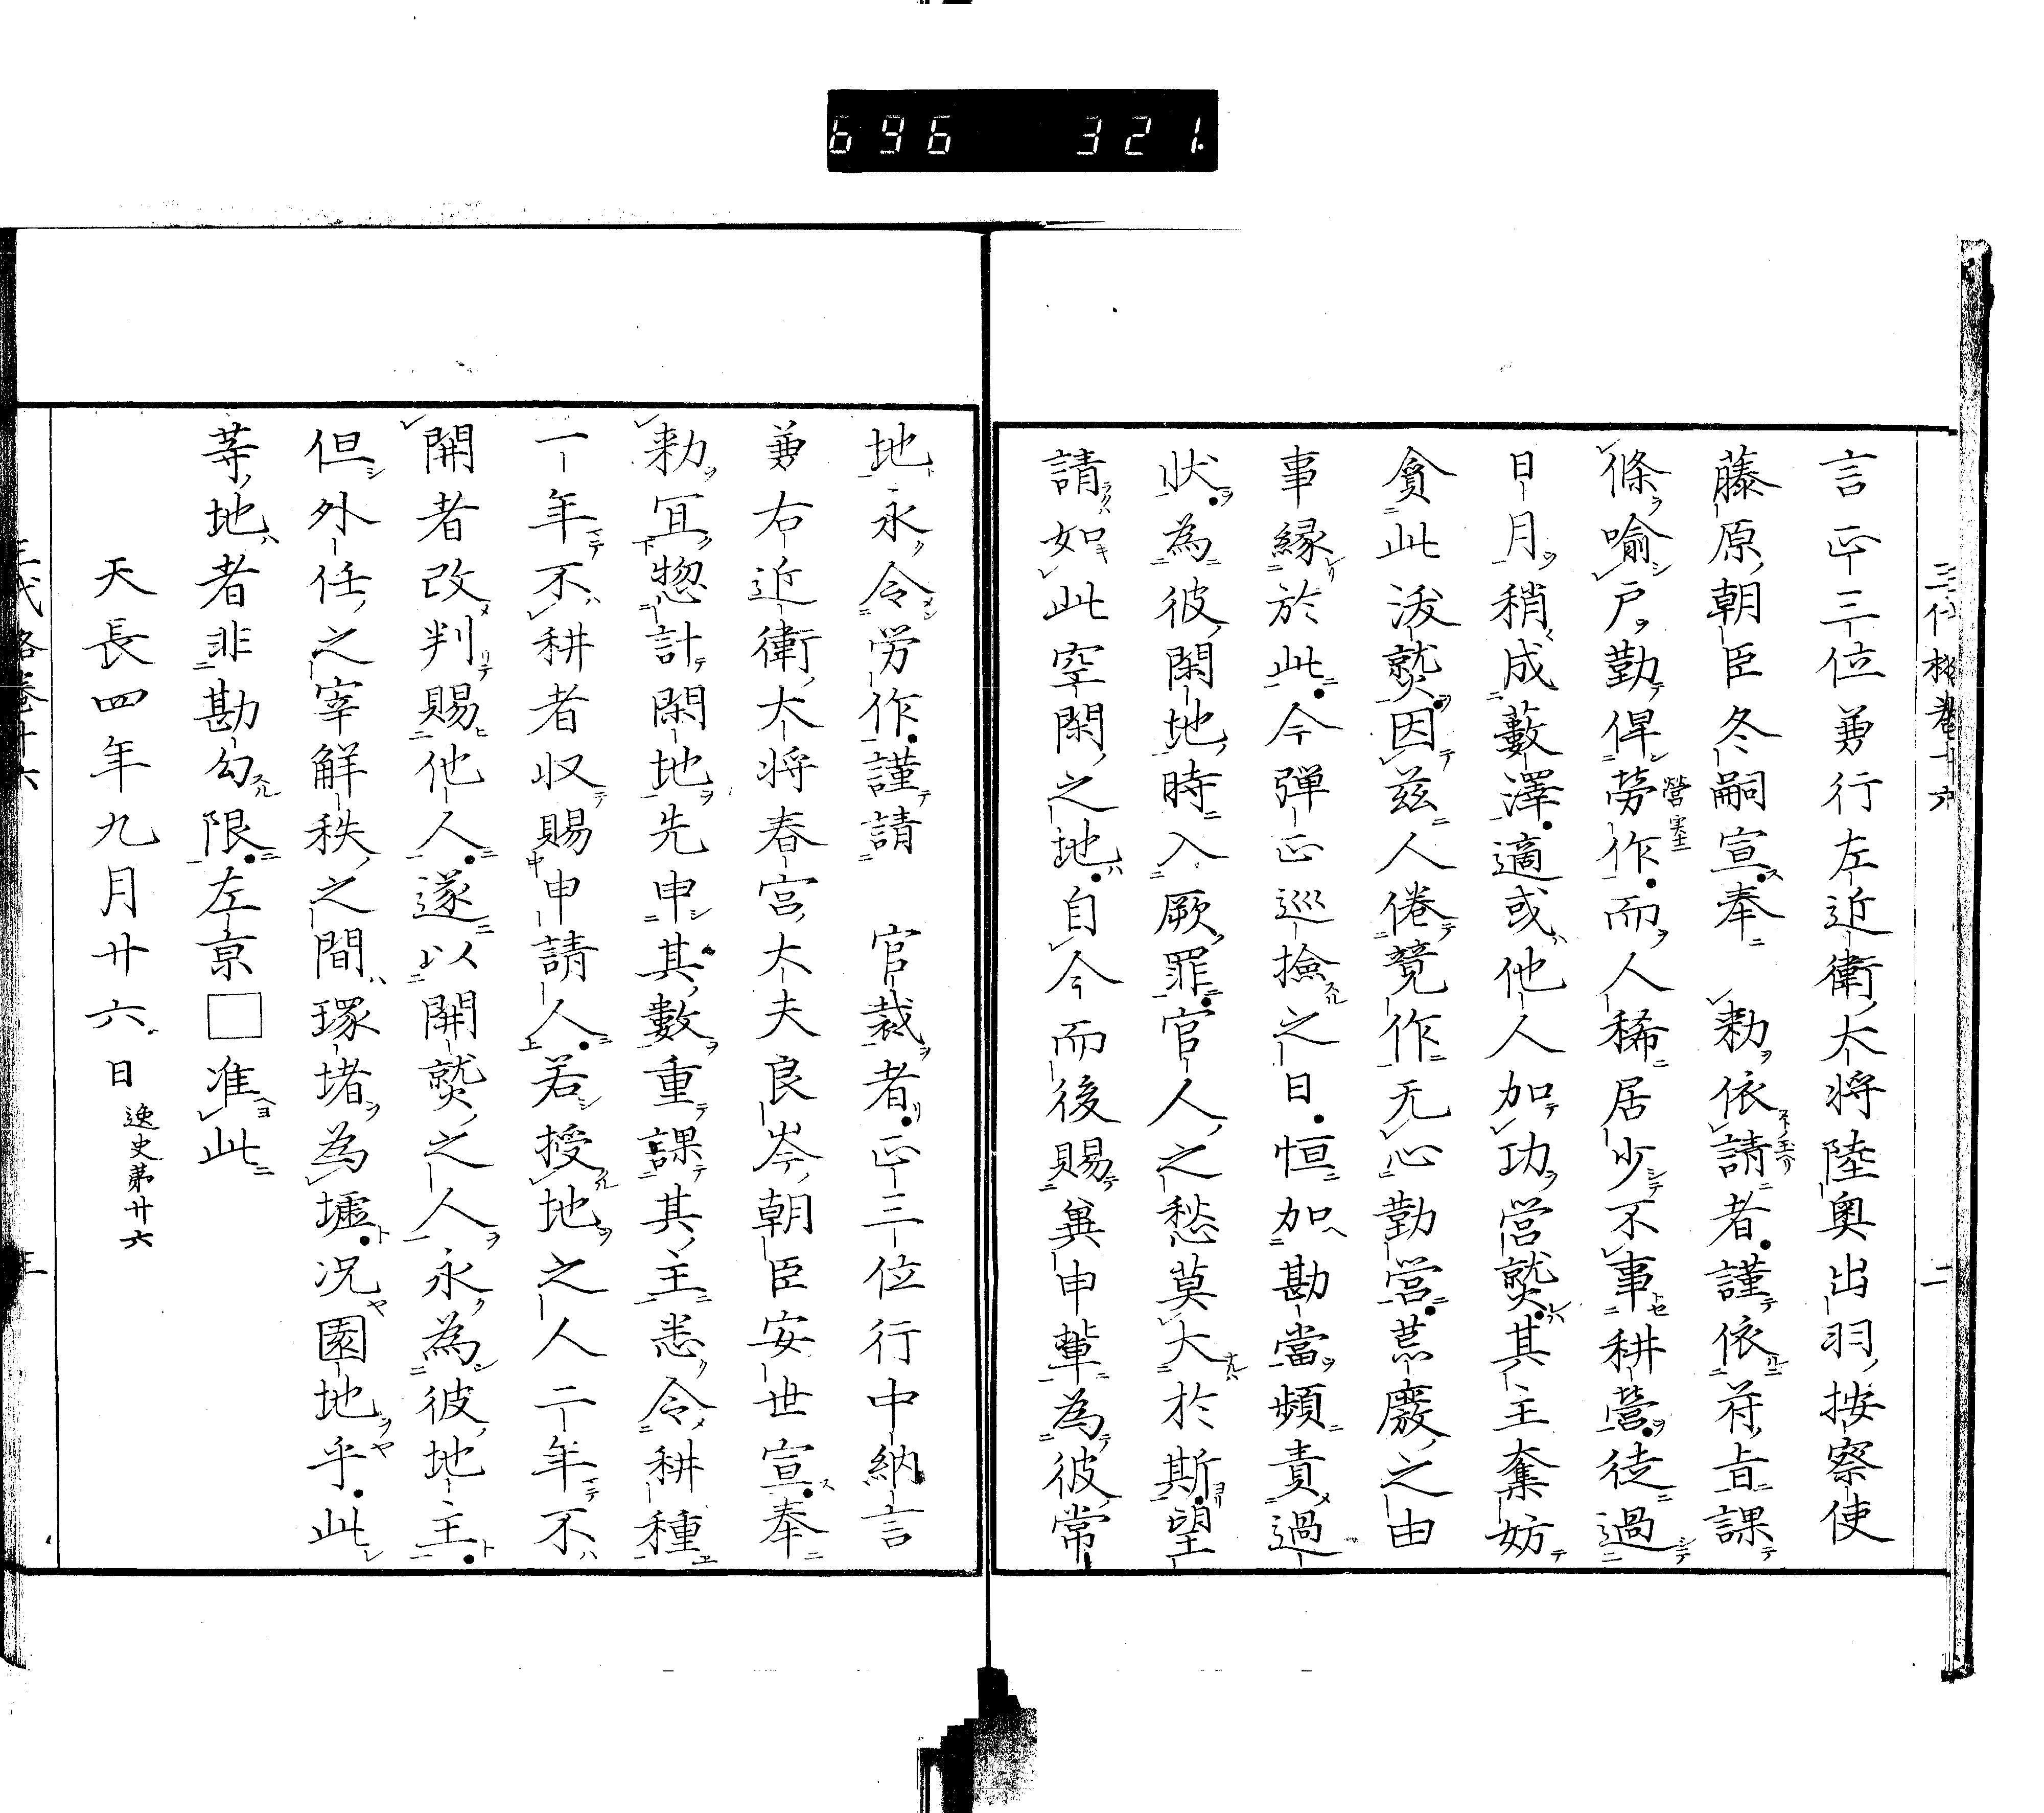 696 321
言正三位兼行左近衛大将陸奥出羽按察使
藤原朝臣冬嗣宣奉 勅依請者謹依符旨課
條喩戸勤俾勞作而人稀居少不事耕營徒過
營 塞
日月稍成藪澤適或他人加功営熟其主奪妨
貪此浅熟因茲人倦競作无心勤営荒廢之由
事縁於此今弾正巡撿之日恒加勘當頻責過
状為彼閑地時入厥罪官人之愁莫大於斯望
請如此空閑之地自今而後賜冀申輩為彼常
地永令労作謹請 官裁者正三位行中納言
兼右近衛大将春宮大夫良岑朝臣安世宣奉
勅冝惣計閑地先申其數重課其主悉令耕種
一年不耕者収賜申請人若授地之人二年不
開者改判賜他人遂以開熟之人永為彼地主
但外任之宰解秩之間琢堵為墟况園地乎此
等地者非勘勾限左京□准此
天長四年九月廿六日 逸史第廿六